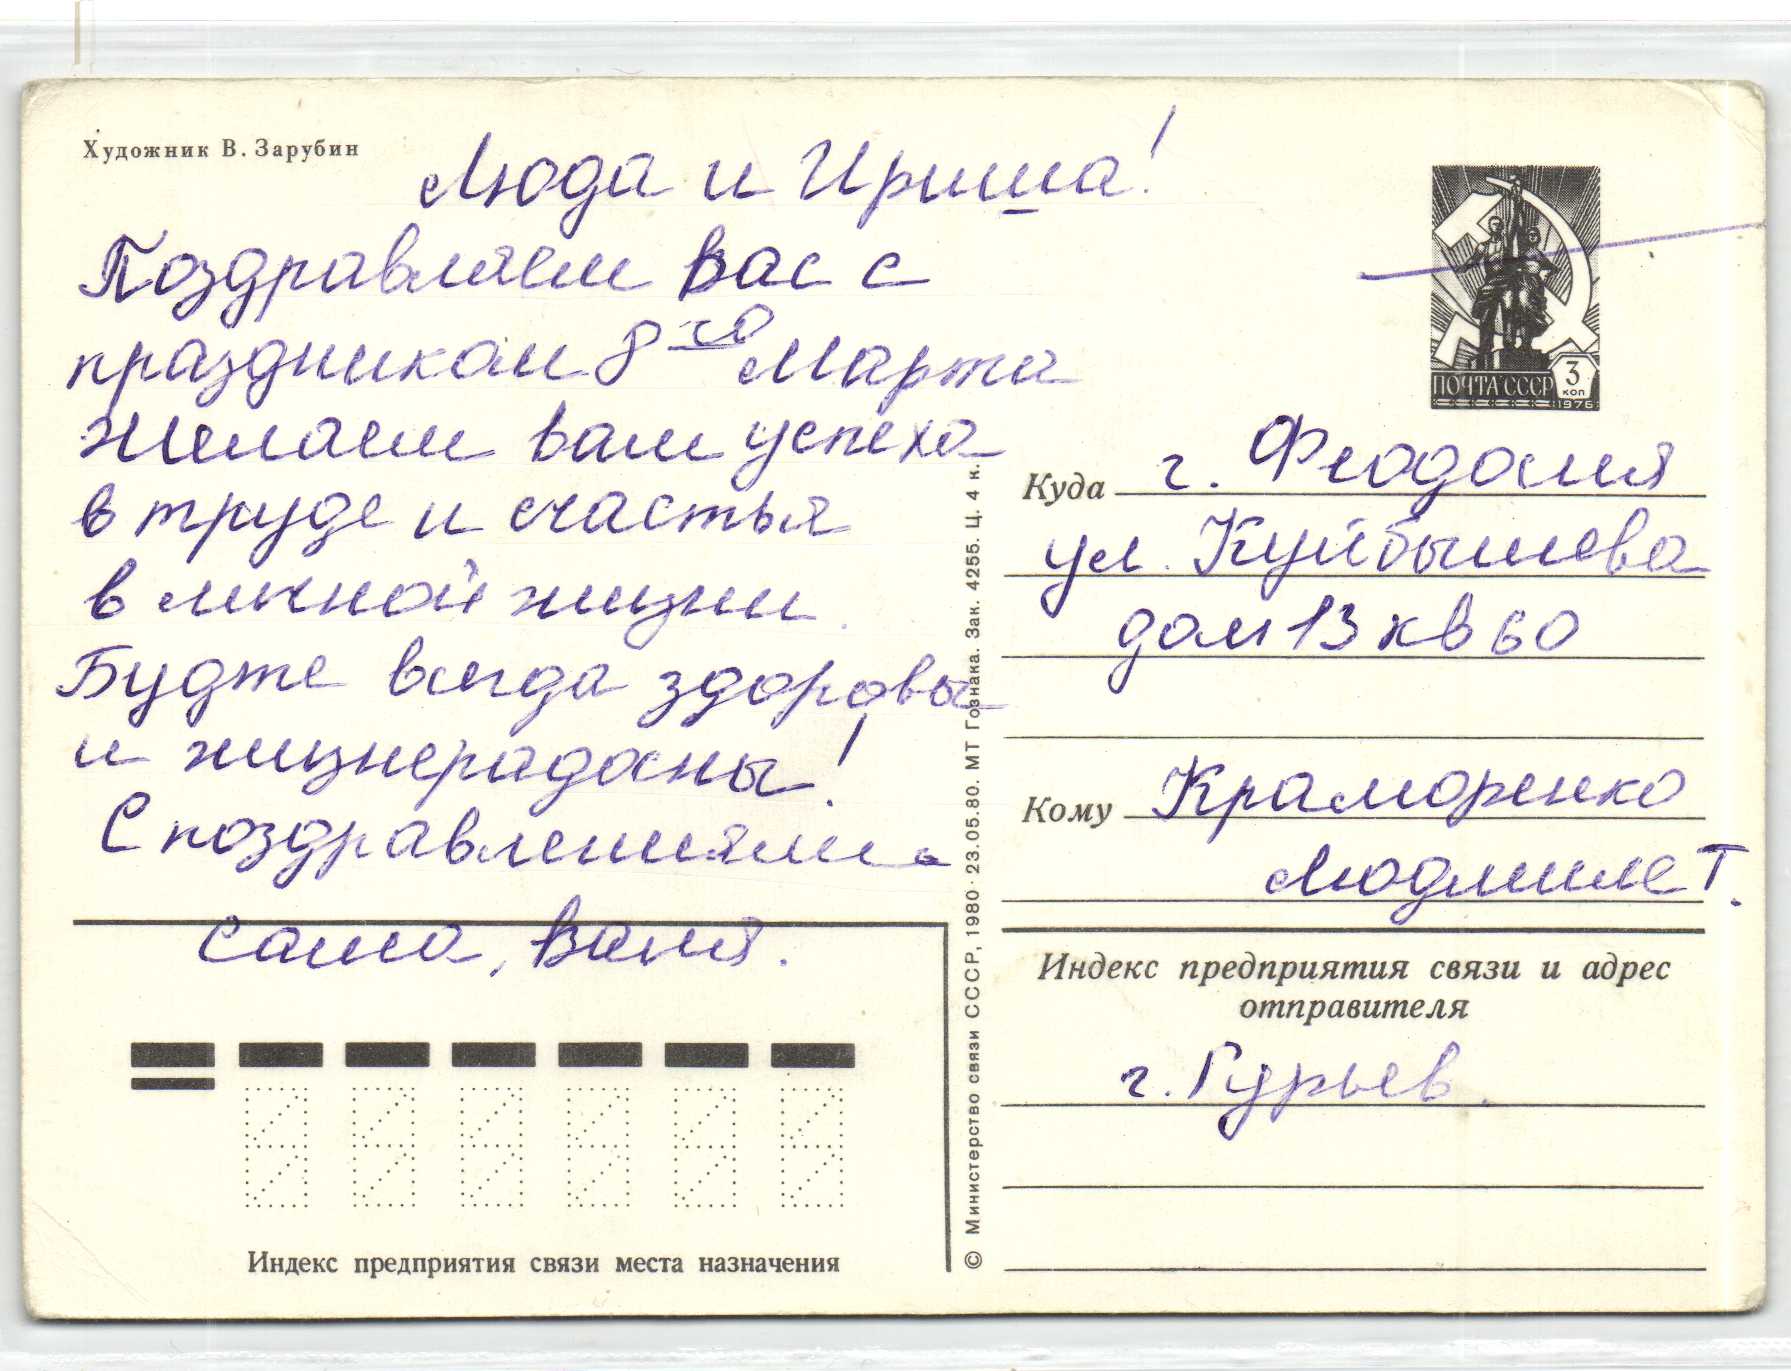 Художник В. Зарубин
Люда и Ириша!
Поздравляем вас с
праздником 8го Марта
Желаем вам успеха
в труде и счастья
в личной жизни.
Будте всегда здоровы
и жизнерадосны!
С поздравлениями
Саша, Ваня.
Индекс предприятия связи места назначения
© Министерство связи СССР, 1980 · 23.05.80. МТ Гознака. Зак. 4255. Ц. 4 к.
ПОЧТА СССР 3 коп
1976
Куда г. Феодосия
ул. Куйбышева
дом 13 кв 60
Кому Краморенко
Людмиле Т.
Индекс предприятия связи и адрес
отправителя
г. Гурьев.